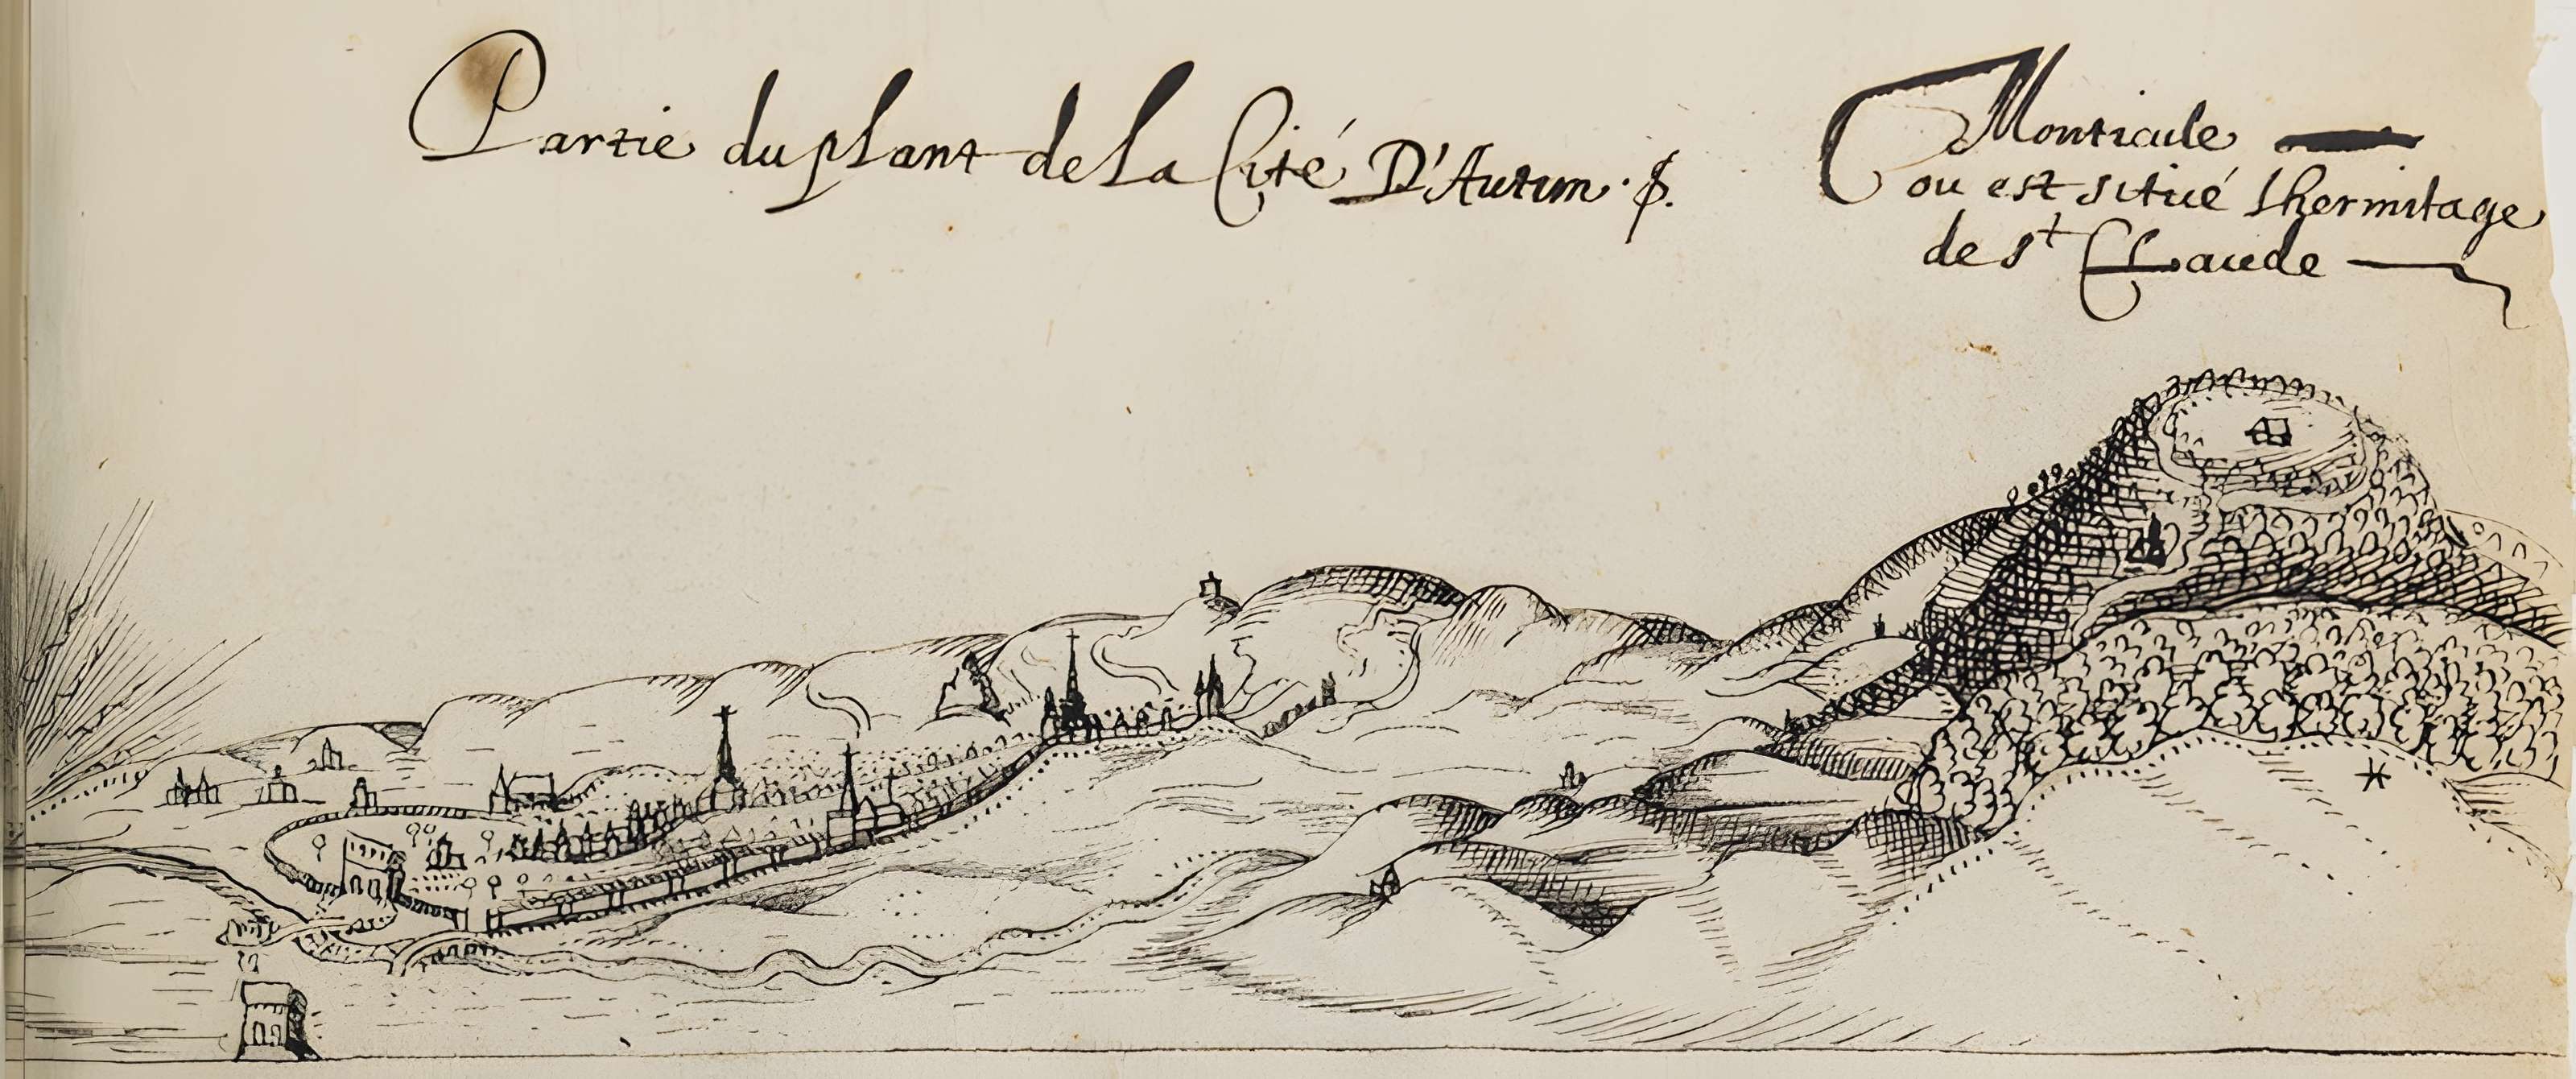 Partie du plant de la Cité D'Autun
Monticule
ou est situé lhermitage
de st Claude